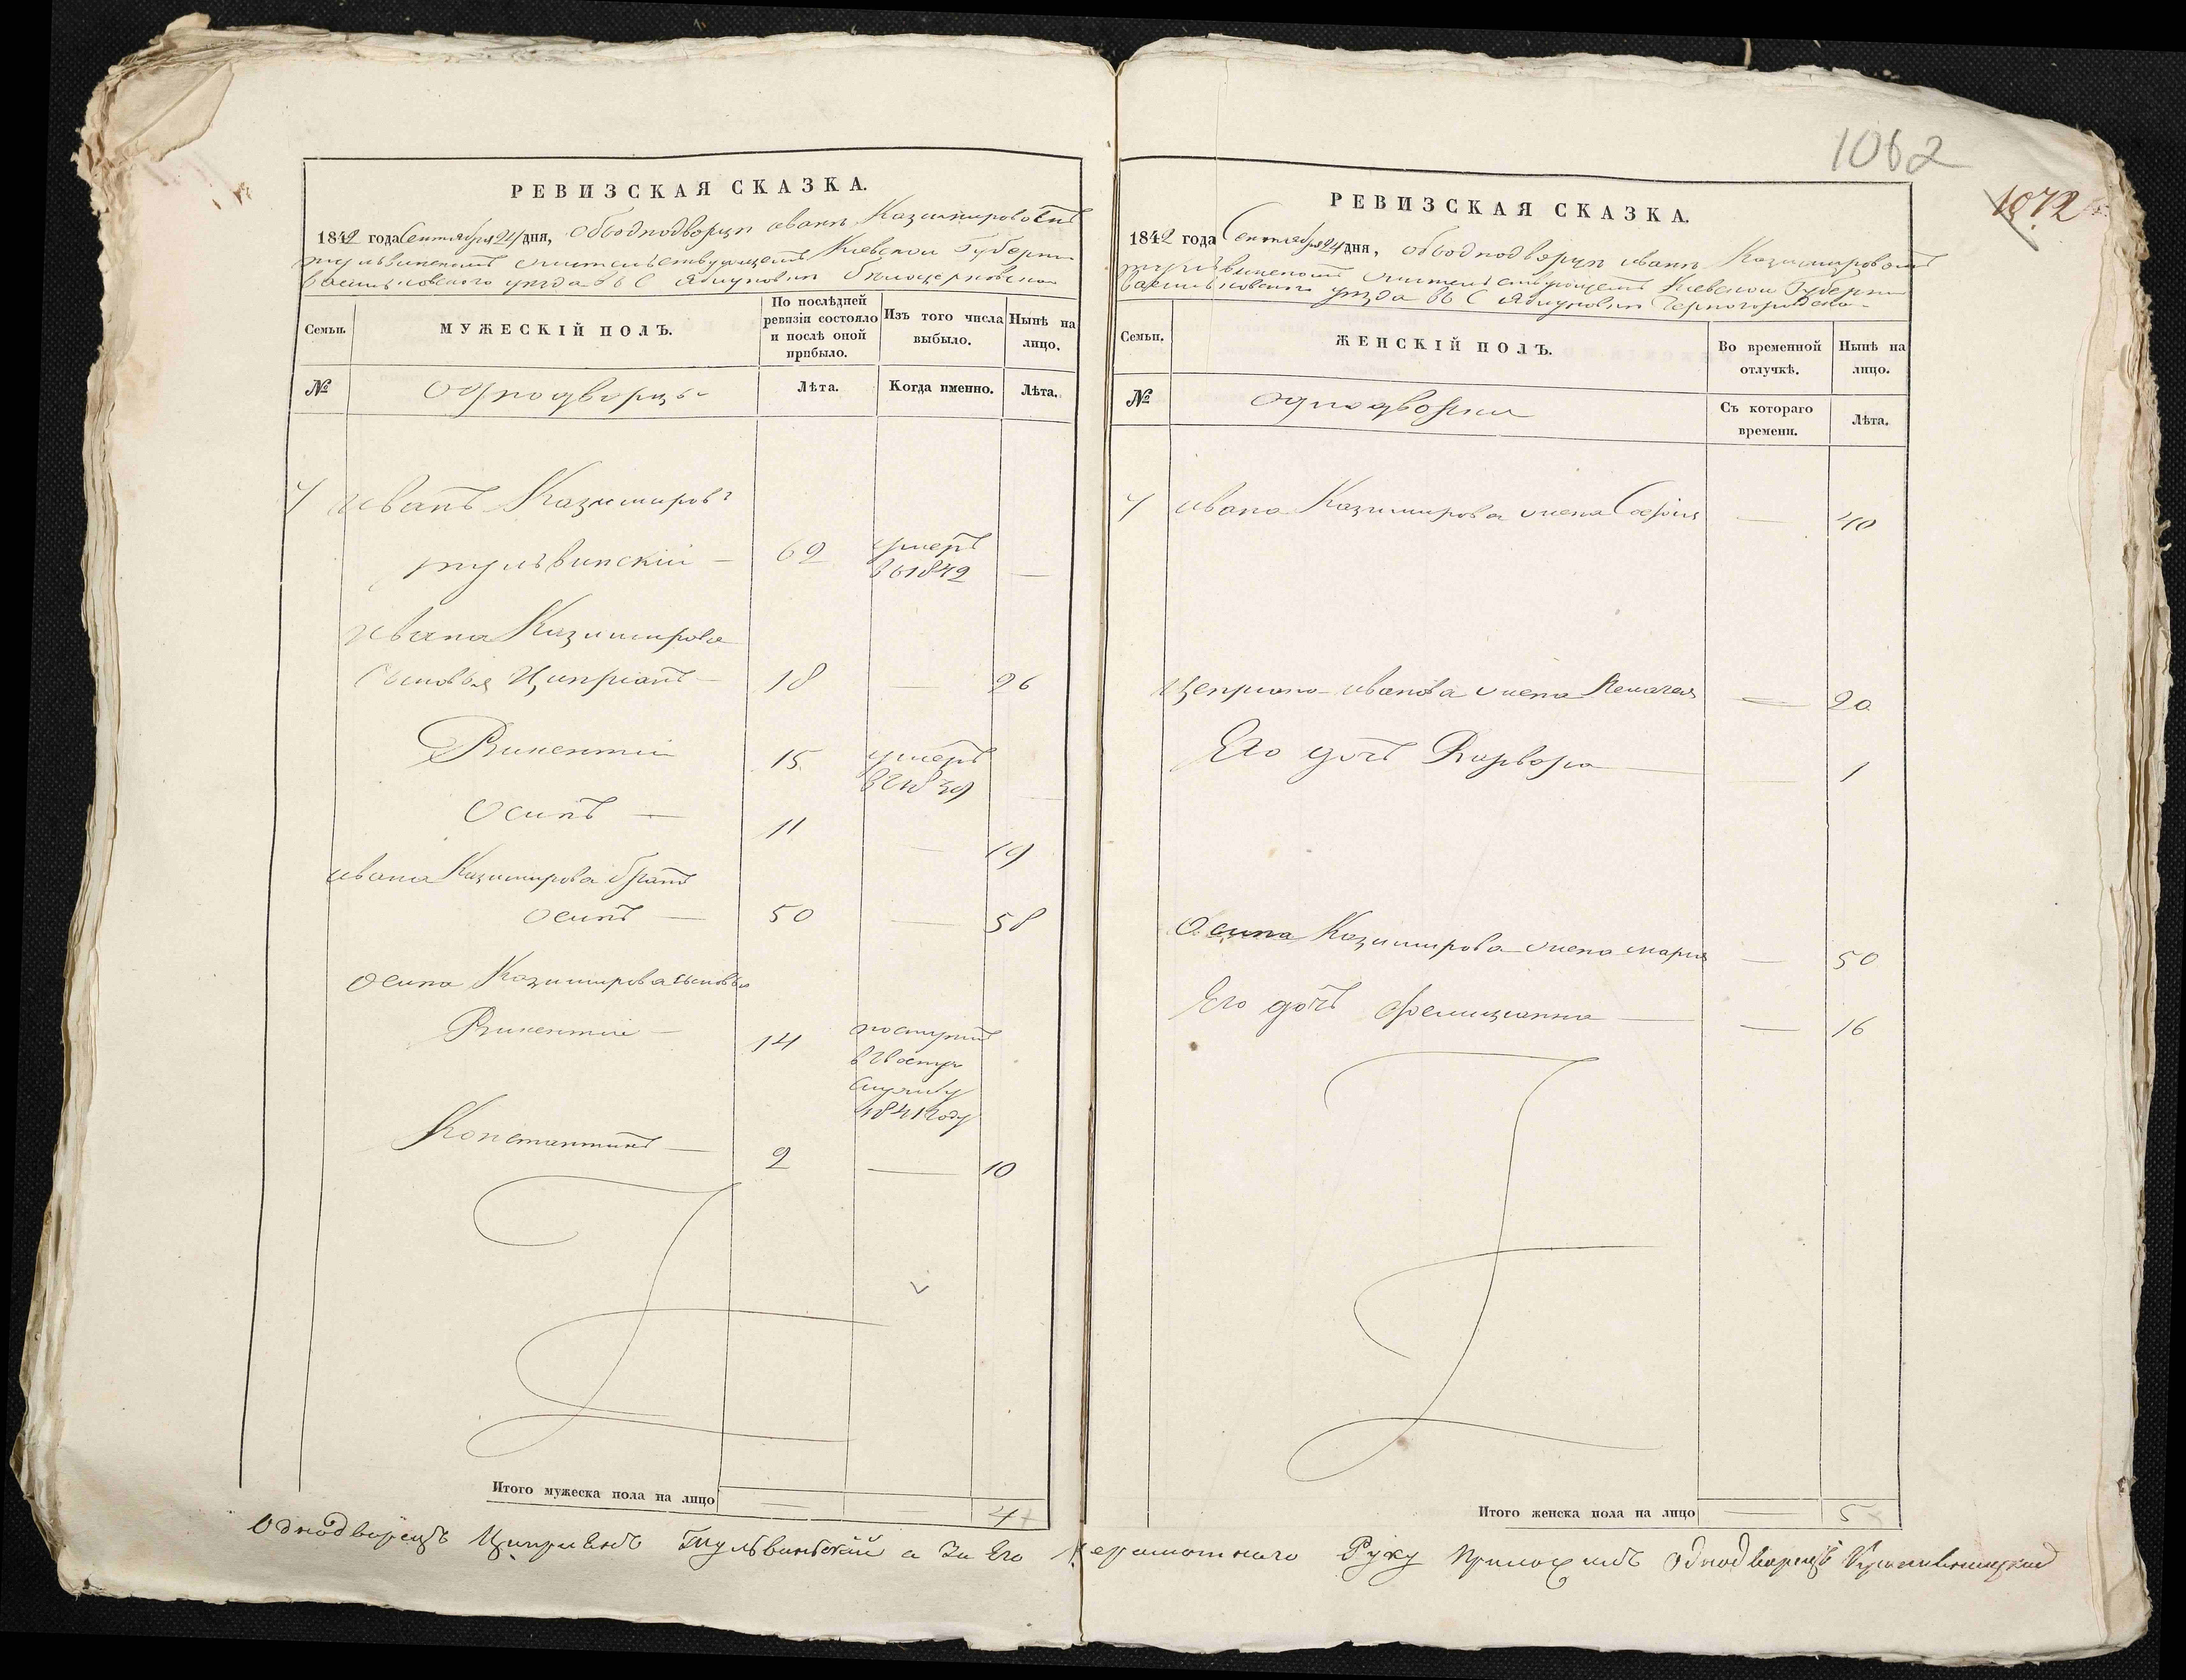 1062
1072
РЕВИЗСКАЯ СКАЗКА.
1842 года Сентября 24 дня, Ободнодворцѣ иванѣ Казимировомъ
тульвинскомъ жительствующемъ Киевской Губерни
васильковского уезда въ С Яблуновки
Семьи.
МУЖЕСКІЙ ПОЛЪ.
По послѣдней ревизіи состояло и послѣ оной прибыло.
Изъ того числа выбыло.
Нынѣ на лицо.
№
однодворцы
Лѣта.
Когда именно.
Лѣта.
иванъ Казимировъ
тульвинскій — 62 умеръ въ 1842 —
ивана Казимирова
сыновья Циприанъ — 18 — 26
Викентий 15 умеръ в 1839 —
Осипъ — 11 — 19
ивана Казимирова братъ
осипъ — 50 — 58
осипа Казимирова сыновья
Викентий — 14 поступил
службу
1841 году
Константинъ — 2 — 10
Итого мужеска пола на лицо — — 4
РЕВИЗСКАЯ СКАЗКА.
1842 года Сентября 24 дня, ободнодворцѣ иванѣ Казимировомъ
тульвинскомъ жительствующемъ Киевской Губерни
васильковского уезда въ С Яблуновки
Семьи.
ЖЕНСКІЙ ПОЛЪ.
Во временной отлучкѣ.
Нынѣ на лицо.
№
однодворки
Съ котораго времени.
Лѣта.
ивана Казимирова жена София — 40
Цеприана иванова жена — 20
Его дочъ Варвара — — 1
Осипа Казимирова жена мария — 50
Его дочъ Фелициянна — — 16
Итого женска пола на лицо — 5
Однодворецъ Циприянъ Тульвинский а За Его Неграмотного Руку Приложилъ Однодворецъ